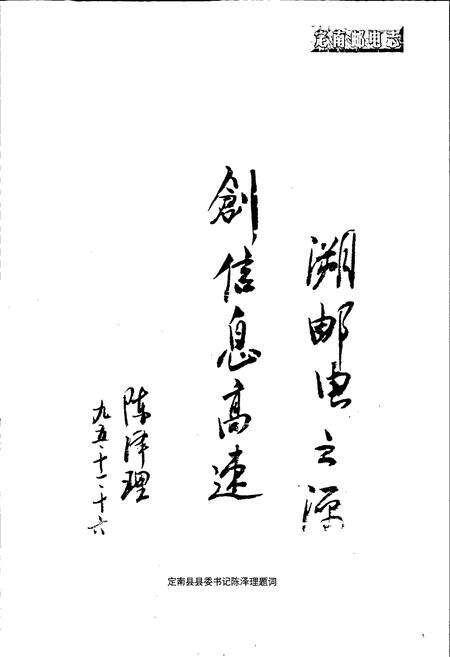 定南邮电志
溯邮电之源
創信息高速
陈泽理
九五·十一·十六
定南县县委书记陈泽理题词